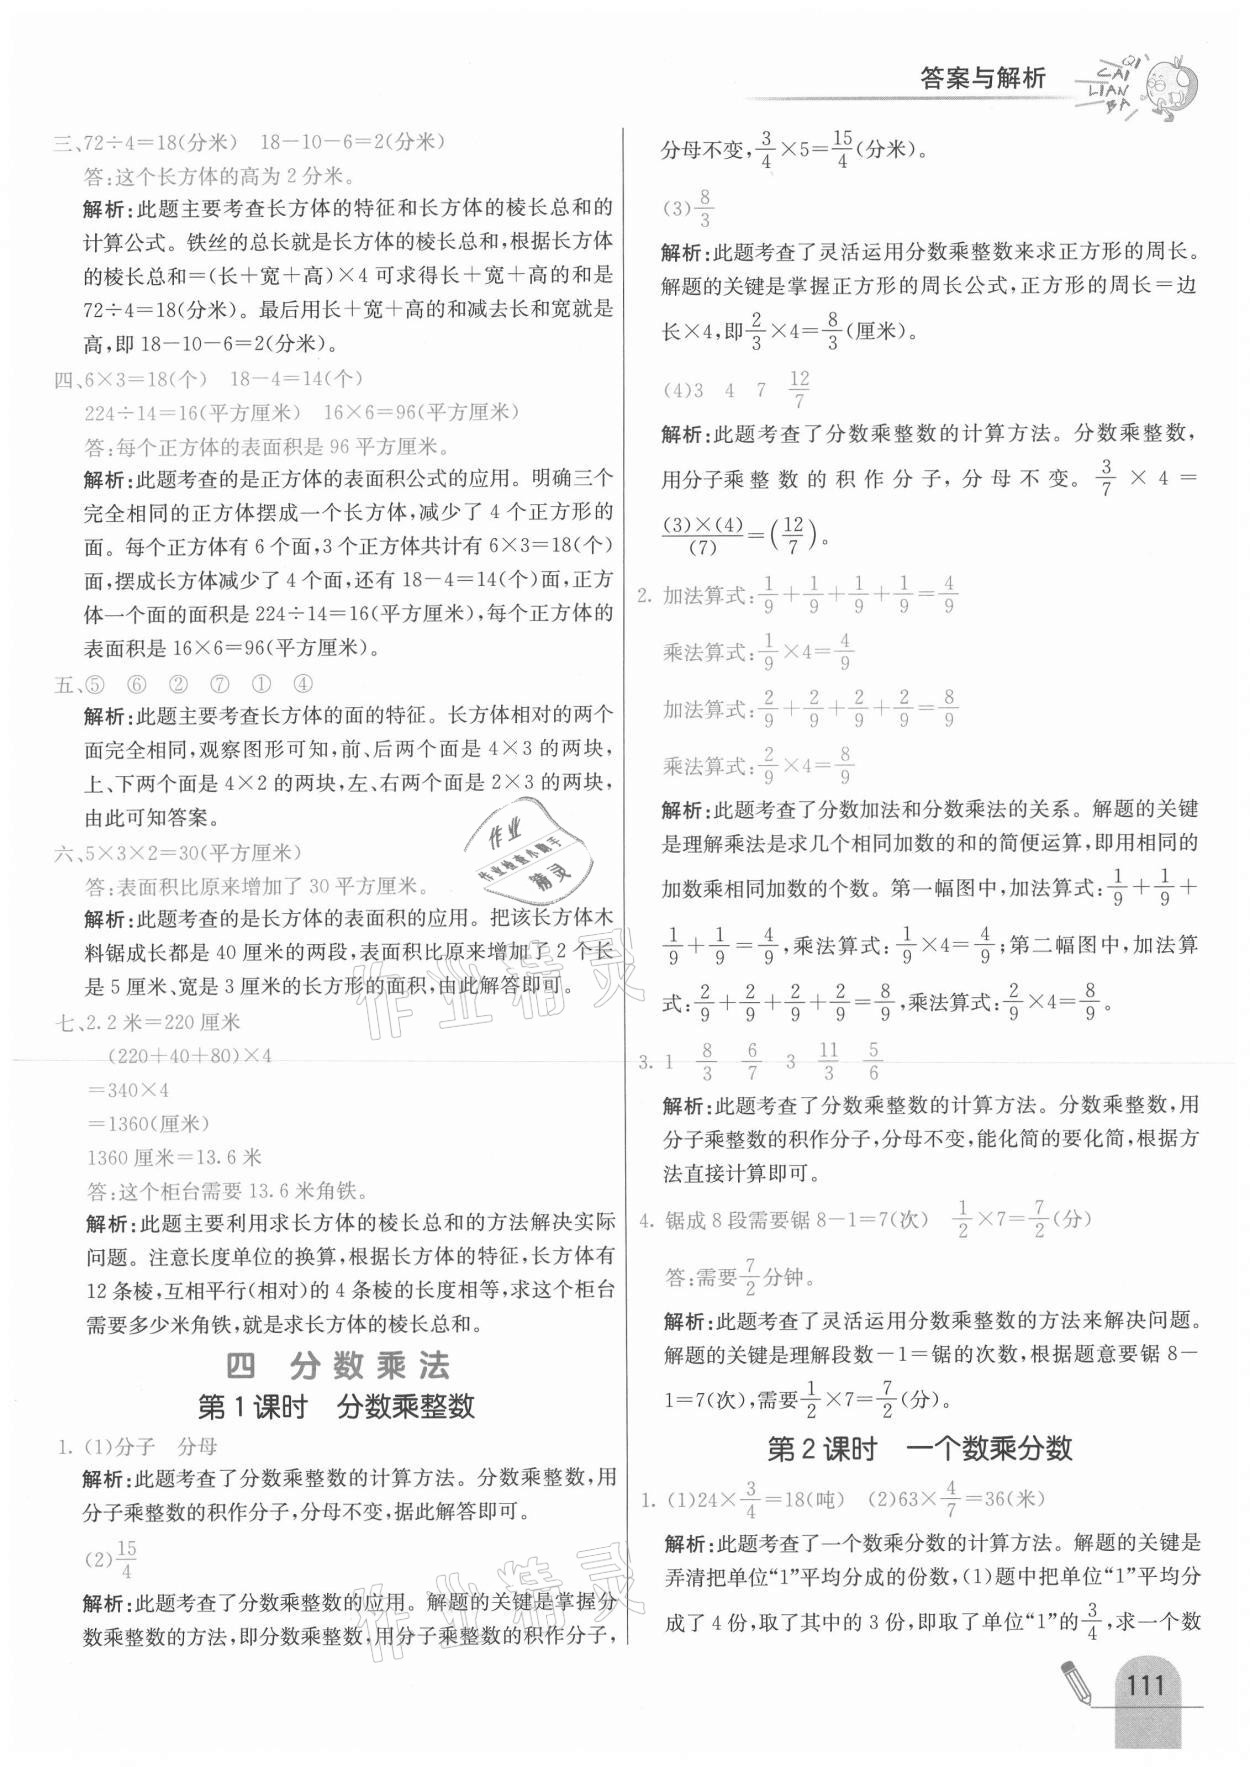 答案与解析
QI
CAI
LIAN
BA
三、72÷4=18(分米) 18-10-6=2(分米)
答:这个长方体的高为2分米。
解析:此题主要考查长方体的特征和长方体的棱长总和的
计算公式。铁丝的总长就是长方体的棱长总和,根据长方体
的棱长总和=(长+宽+高)×4可求得长+宽+高的和是
72÷4=18(分米)。最后用长+宽+高的和减去长和宽就是
高,即18-10-6=2(分米)。
四、6×3=18(个) 18-4=14(个)
224÷14=16(平方厘米) 16×6=96(平方厘米)
答:每个正方体的表面积是96平方厘米。
解析:此题考查的是正方体的表面积公式的应用。明确三个
完全相同的正方体摆成一个长方体,减少了4个正方形的
面。每个正方体有6个面,3个正方体共计有6×3=18(个)
面,摆成长方体减少了4个面,还有18-4=14(个)面,正方
体一个面的面积是224÷14=16(平方厘米),每个正方体的
表面积是16×6=96(平方厘米)。
五、⑤ ⑥ ② ⑦ ① ④
解析:此题主要考查长方体的面的特征。长方体相对的两个
面完全相同,观察图形可知,前、后两个面是4×3的两块,
上、下两个面是4×2的两块,左、右两个面是2×3的两块,
由此可知答案。
六、5×3×2=30(平方厘米)
答:表面积比原来增加了30平方厘米。
解析:此题考查的是长方体的表面积的应用。把该长方体木
料锯成长都是40厘米的两段,表面积比原来增加了2个长
是5厘米、宽是3厘米的长方形的面积,由此解答即可。
七、2.2米=220厘米
(220+40+80)×4
=340×4
=1360(厘米)
1360厘米=13.6米
答:这个柜台需要13.6米角铁。
解析:此题主要利用求长方体的棱长总和的方法解决实际
问题。注意长度单位的换算,根据长方体的特征,长方体有
12条棱,互相平行(相对)的4条棱的长度相等,求这个柜台
需要多少米角铁,就是求长方体的棱长总和。
四 分数乘法
第1课时 分数乘整数
1. (1)分子 分母
解析:此题考查了分数乘整数的计算方法。分数乘整数,用
分子乘整数的积作分子,分母不变,据此解答即可。
(2)15/4
解析:此题考查了分数乘整数的应用。解题的关键是掌握分
数乘整数的方法,即分数乘整数,用分子乘整数的积作分子,
分母不变,3/4×5=15/4(分米)。
(3)8/3
解析:此题考查了灵活运用分数乘整数来求正方形的周长。
解题的关键是掌握正方形的周长公式,正方形的周长=边
长×4,即2/3×4=8/3(厘米)。
(4)3 4 7 12/7
解析:此题考查了分数乘整数的计算方法。分数乘整数,
用分子乘整数的积作分子,分母不变。3/7×4=
(3)×(4)/(7)=(12/7)。
2. 加法算式:1/9+1/9+1/9+1/9=4/9
乘法算式:1/9×4=4/9
加法算式:2/9+2/9+2/9+2/9=8/9
乘法算式:2/9×4=8/9
解析:此题考查了分数加法和分数乘法的关系。解题的关键
是理解乘法是求几个相同加数的和的简便运算,即用相同的
加数乘相同加数的个数。第一幅图中,加法算式:1/9+1/9+
1/9+1/9=4/9,乘法算式:1/9×4=4/9;第二幅图中,加法算
式:2/9+2/9+2/9+2/9=8/9,乘法算式:2/9×4=8/9。
3. 1 8/3 6/7 3 11/3 5/6
解析:此题考查了分数乘整数的计算方法。分数乘整数,用
分子乘整数的积作分子,分母不变,能化简的要化简,根据方
法直接计算即可。
4. 锯成8段需要锯8-1=7(次) 1/2×7=7/2(分)
答:需要7/2分钟。
解析:此题考查了灵活运用分数乘整数的方法来解决问题。
解题的关键是理解段数-1=锯的次数,根据题意要锯8-
1=7(次),需要1/2×7=7/2(分)。
第2课时 一个数乘分数
1. (1)24×3/4=18(吨) (2)63×4/7=36(米)
解析:此题考查了一个数乘分数的计算方法。解题的关键是
弄清把单位“1”平均分成的份数,(1)题中把单位“1”平均分
成了4份,取了其中的3份,即取了单位“1”的3/4,求一个数
111
作业
作业检查小助手
精灵
作业精灵
作业精灵